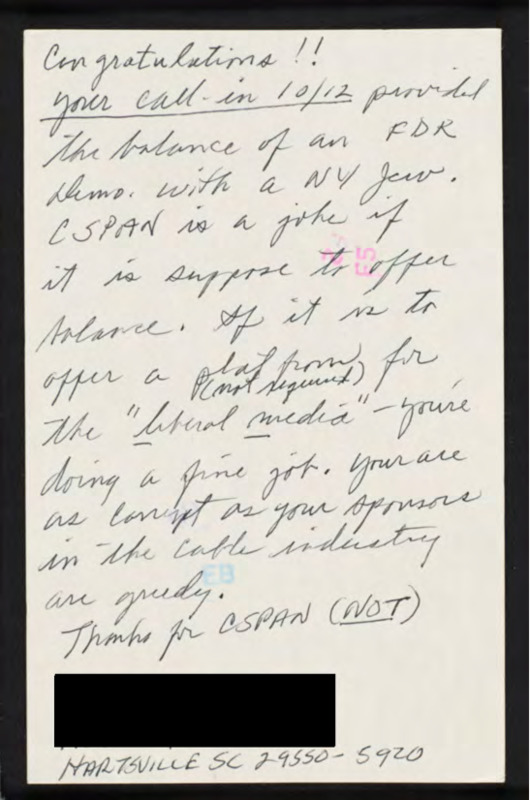 Congratulations !!
your call-in 10/12 provided
the balance of an FDR
Demo. with a NY Jew.
CSPAN is a joke if
it is suppose to offer
balance. If it is to
offer a platfrom for
(not required)
the "liberal media" - you're
doing a fine job. Your are
as corrupt as your sponsors
in the cable industry
are greedy.
Thanks for CSPAN (NOT)
HARTSVILLE SC 29550-5920
E5
EB